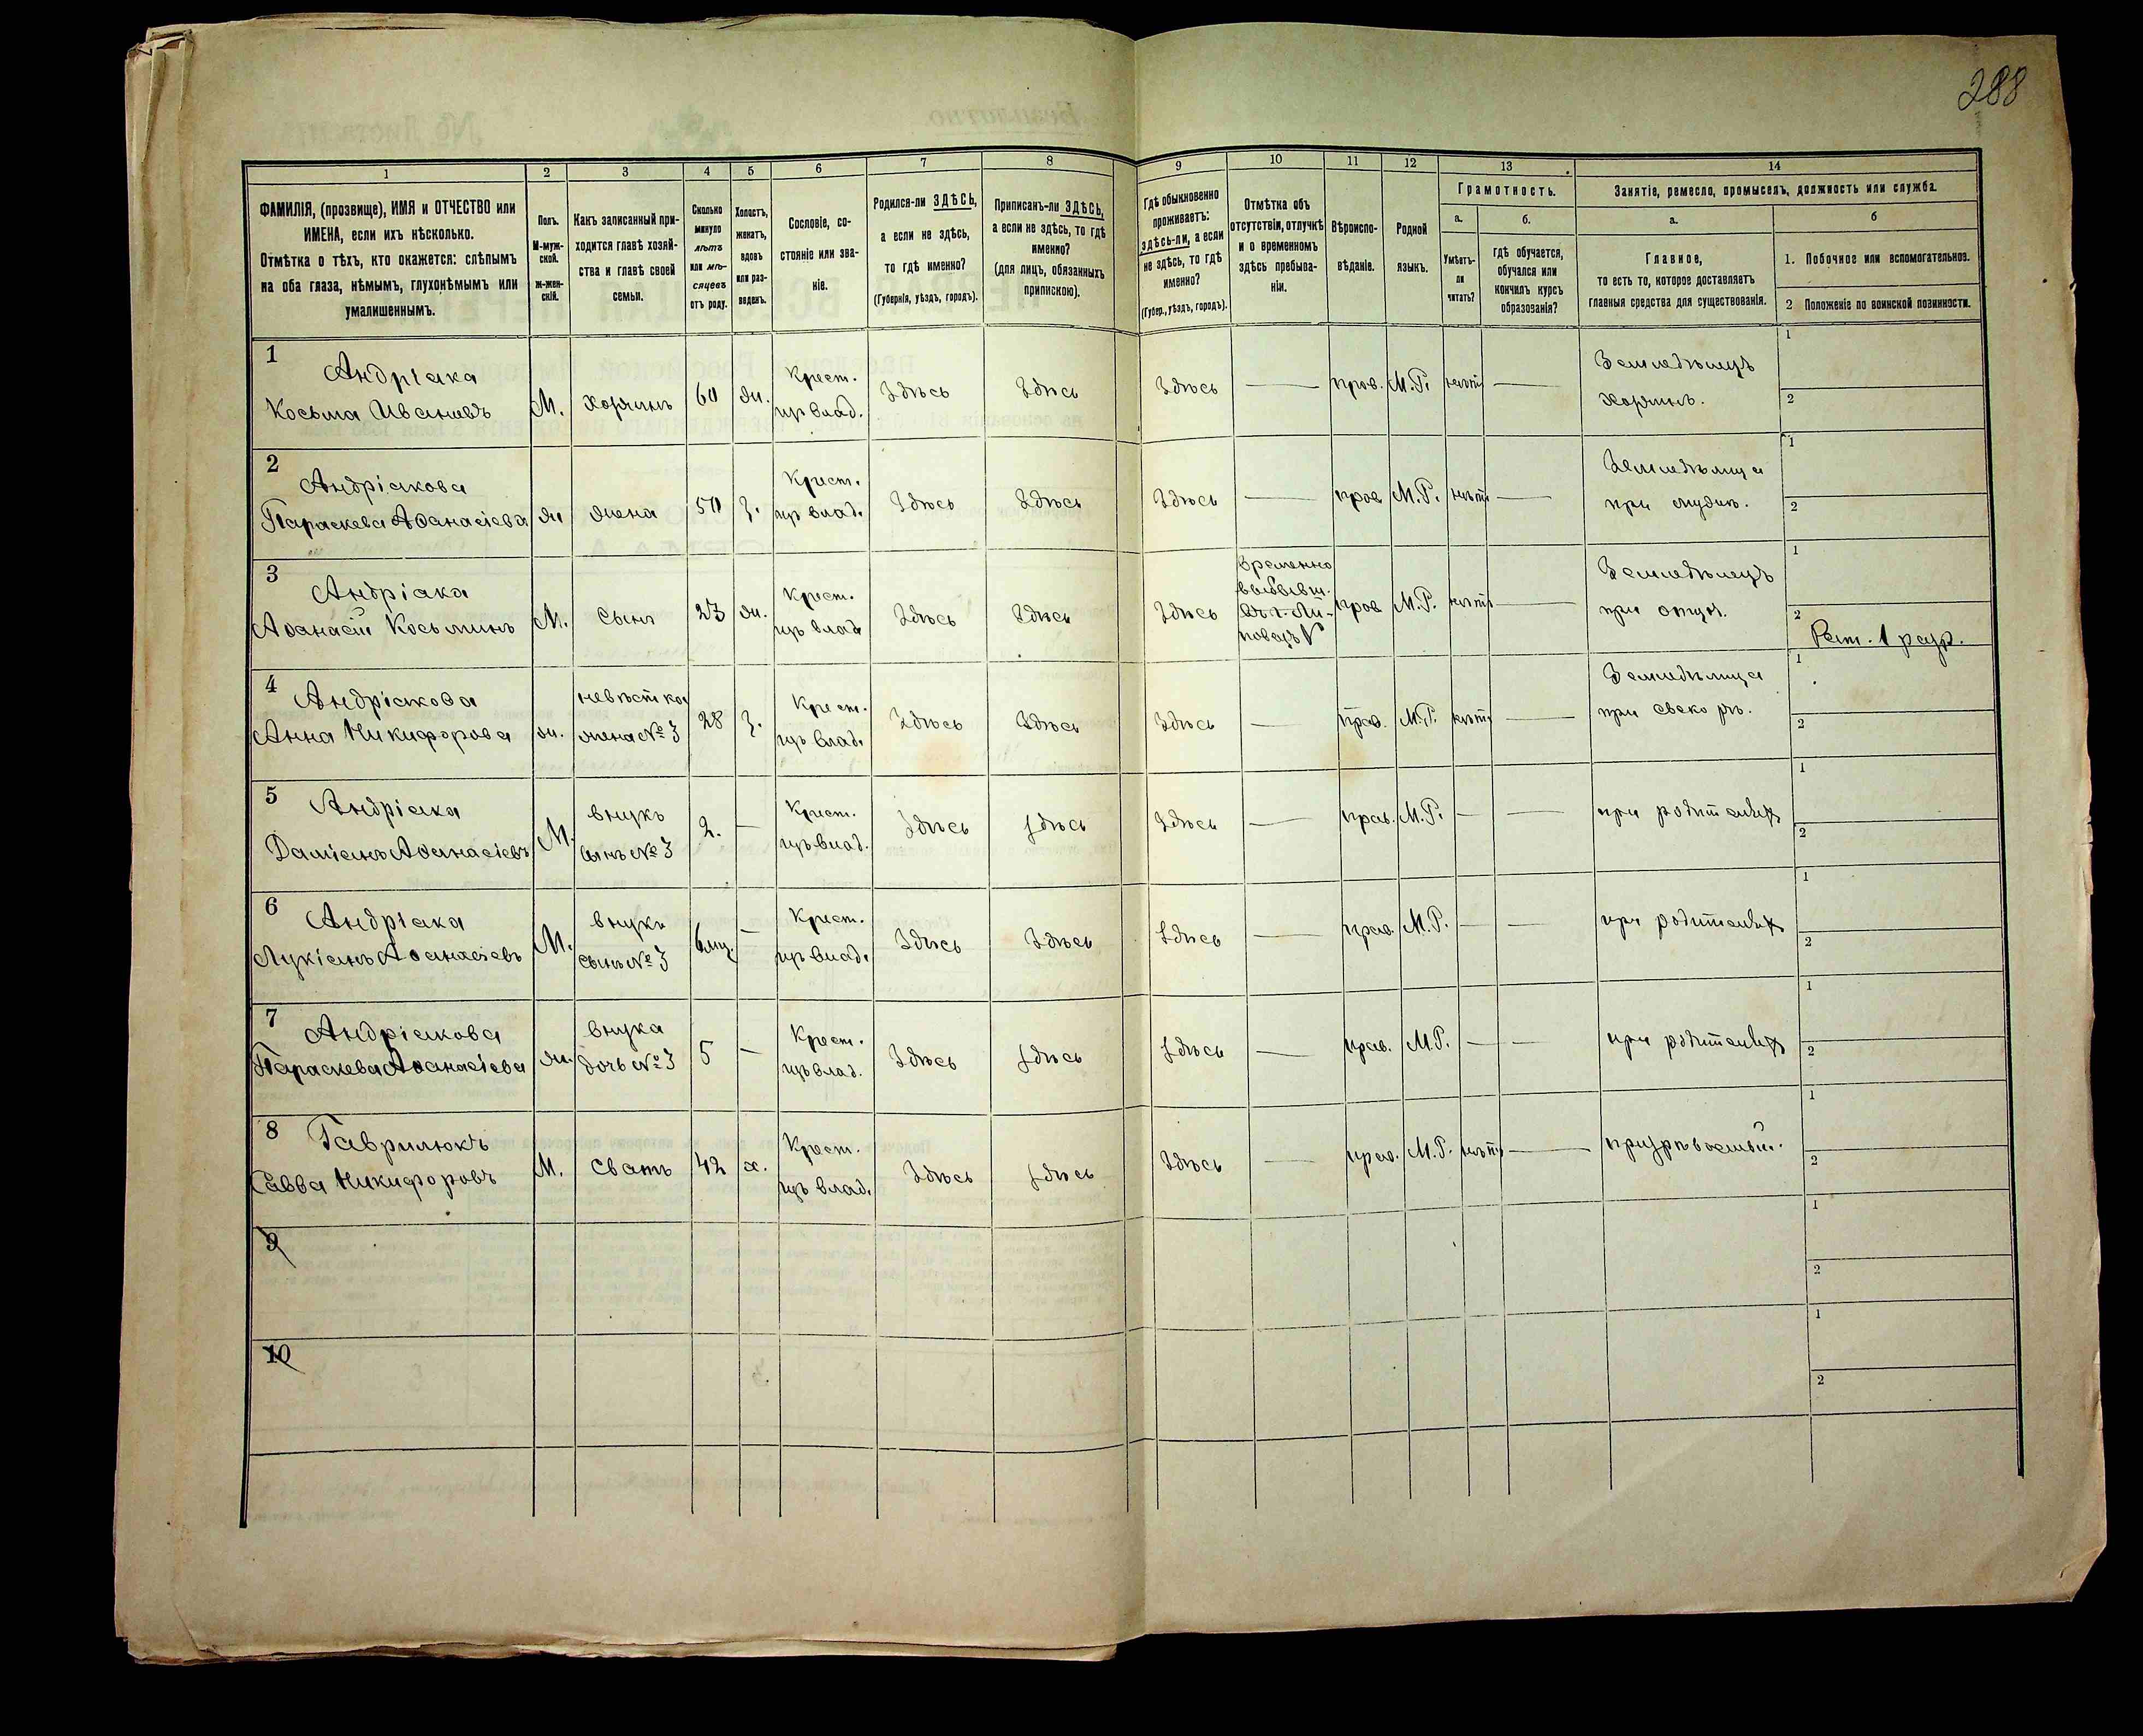 288
1
2
3
4
5
6
7
8
9
10
11
12
13
14
ФАМИЛІЯ, (прозвище), ИМЯ и ОТЧЕСТВО или
ИМЕНА, если ихъ нѣсколько.
Отмѣтка о тѣхъ, кто окажется: слѣпымъ
на оба глаза, нѣмымъ, глухонѣмымъ или
умалишеннымъ.
Полъ.
М-муж-
ской.
ж-жен-
скій.
Какъ записанный при-
ходится главѣ хозяй-
ства и главѣ своей
семьи.
Сколько
минуло
лѣтъ
или мѣ-
сяцевъ
отъ роду.
Холостъ,
женатъ,
вдовъ
или раз-
веденъ.
Сословіе, со-
стояніе или зва-
ніе.
Родился-ли ЗДѢСЬ,
а если не здѣсь,
то гдѣ именно?
(Губернія, уѣздъ, городъ).
Приписанъ-ли ЗДѢСЬ,
а если не здѣсь, то гдѣ
именно?
(для лицъ, обязанныхъ
припискою).
Гдѣ обыкновенно
проживаетъ:
здѣсь-ли, а если
не здѣсь, то гдѣ
именно?
(Губер., уѣздъ, городъ).
Отмѣтка объ
отсутствіи, отлучкѣ
и о временномъ
здѣсь пребыва-
ніи.
Вѣроиспо-
вѣданіе.
Родной
языкъ.
Грамотность.
а.
б.
Умѣетъ-
ли
читать?
Гдѣ обучается,
обучался или
кончилъ курсъ
образованія?
Занятіе, ремесло, промыселъ, должность или служба.
а.
б
Главное,
то есть то, которое доставляетъ
главныя средства для существованія.
1. Побочное или вспомогательное.
2 Положеніе по воинской повинности.
1
Андріака
Косьма Ивановъ
М.
хозяинъ
60
ж.
Крест.
изъ влад.
Здѣсь
Здѣсь
Здѣсь
—
прав.
М.Р.
нѣтъ
—
Земледѣлецъ
хозяинъ.
1
2
2
Андріакова
Параскева Аѳанасіева
ж
жена
50
з.
Крест.
изъ влад.
Здѣсь
Здѣсь
Здѣсь
—
прав
М.Р.
нѣтъ
—
Земледѣлица
при мужѣ.
1
2
3
Андріака
Аѳанасій Косьминъ
М.
Сынъ
23
ж.
Крест.
изъ влад
Здѣсь
Здѣсь
Здѣсь
Временно
выбывш.
повецъ
прав
М.Р.
нѣтъ
—
Земледѣлецъ
при отцѣ.
1
2
Рат. 1 разр.
4
Андріакова
Анна Никифорова
ж.
невѣстка
жена № 3
28
з.
Крест.
изъ влад.
Здѣсь
Здѣсь
Здѣсь
—
прав.
М.Р.
нѣтъ
—
Земледѣлица
при свекорѣ.
1
2
5
Андріака
Даміанъ Аѳанасіевъ
М.
внукъ
сынъ № 3
2.
—
Крест.
изъ влад.
Здѣсь
Здѣсь
Здѣсь
—
прав.
М.Р.
—
—
при родителяхъ
1
2
6
Андріака
Лукіанъ Аѳанасіевъ
М.
внукъ
сынъ № 3
6 мц.
—
Крест.
изъ влад.
Здѣсь
Здѣсь
Здѣсь
—
прав.
М.Р.
—
—
при родителяхъ
1
2
7
Андріакова
Параскева Аѳанасіева
ж.
внука
дочь № 3
5
—
Крест.
изъ влад.
Здѣсь
Здѣсь
Здѣсь
—
прав.
М.Р.
—
—
при родителяхъ
1
2
8
Гаврилюкъ
Савва Никифоровъ
М.
Сватъ
42
х.
Крест.
изъ влад.
Здѣсь
Здѣсь
Здѣсь
—
прав.
М.Р.
нѣтъ
—
призрѣваемый.
1
2
9
1
2
10
1
2